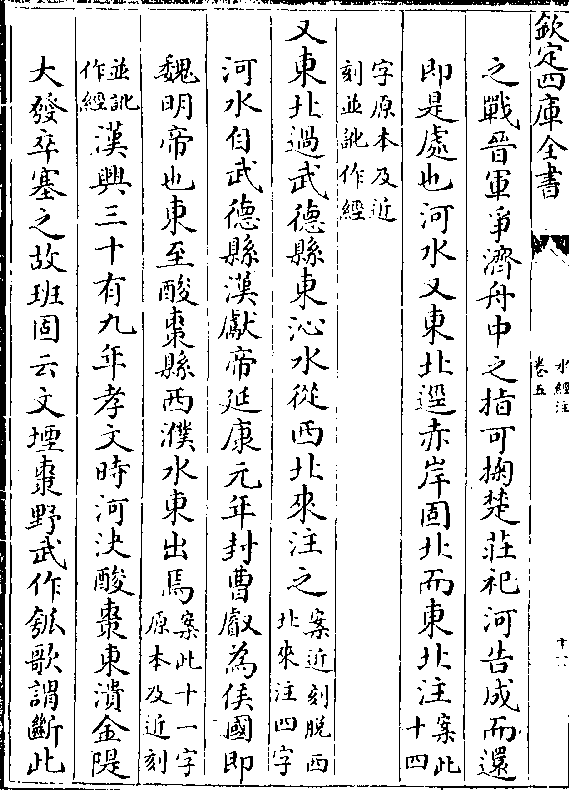 欽定四庫全書
水經注
卷五
十一
之戰晉軍爭濟舟中之指可掬楚莊祀河告成而還
即是處也河水又東北逕赤岸固北而東北注案此十四
字原本及近刻並訛作經
又東北過武德縣東沁水從西北來注之案近刻脫西北來注四字
河水自武德縣漢獻帝延康元年封曹叡為侯國即
魏明帝也東至酸棗縣西濮水東出焉案此十一字原本及近刻
並訛作經漢興三十有九年孝文時河決酸棗東潰金隄
大發卒塞之故班固云文堙棗野武作瓠歌謂斷此